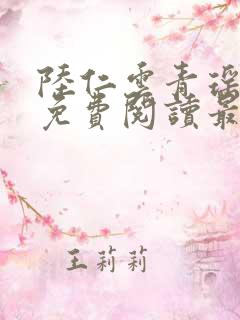 陸仁雲青瑤
免費閱讀最
王莉莉